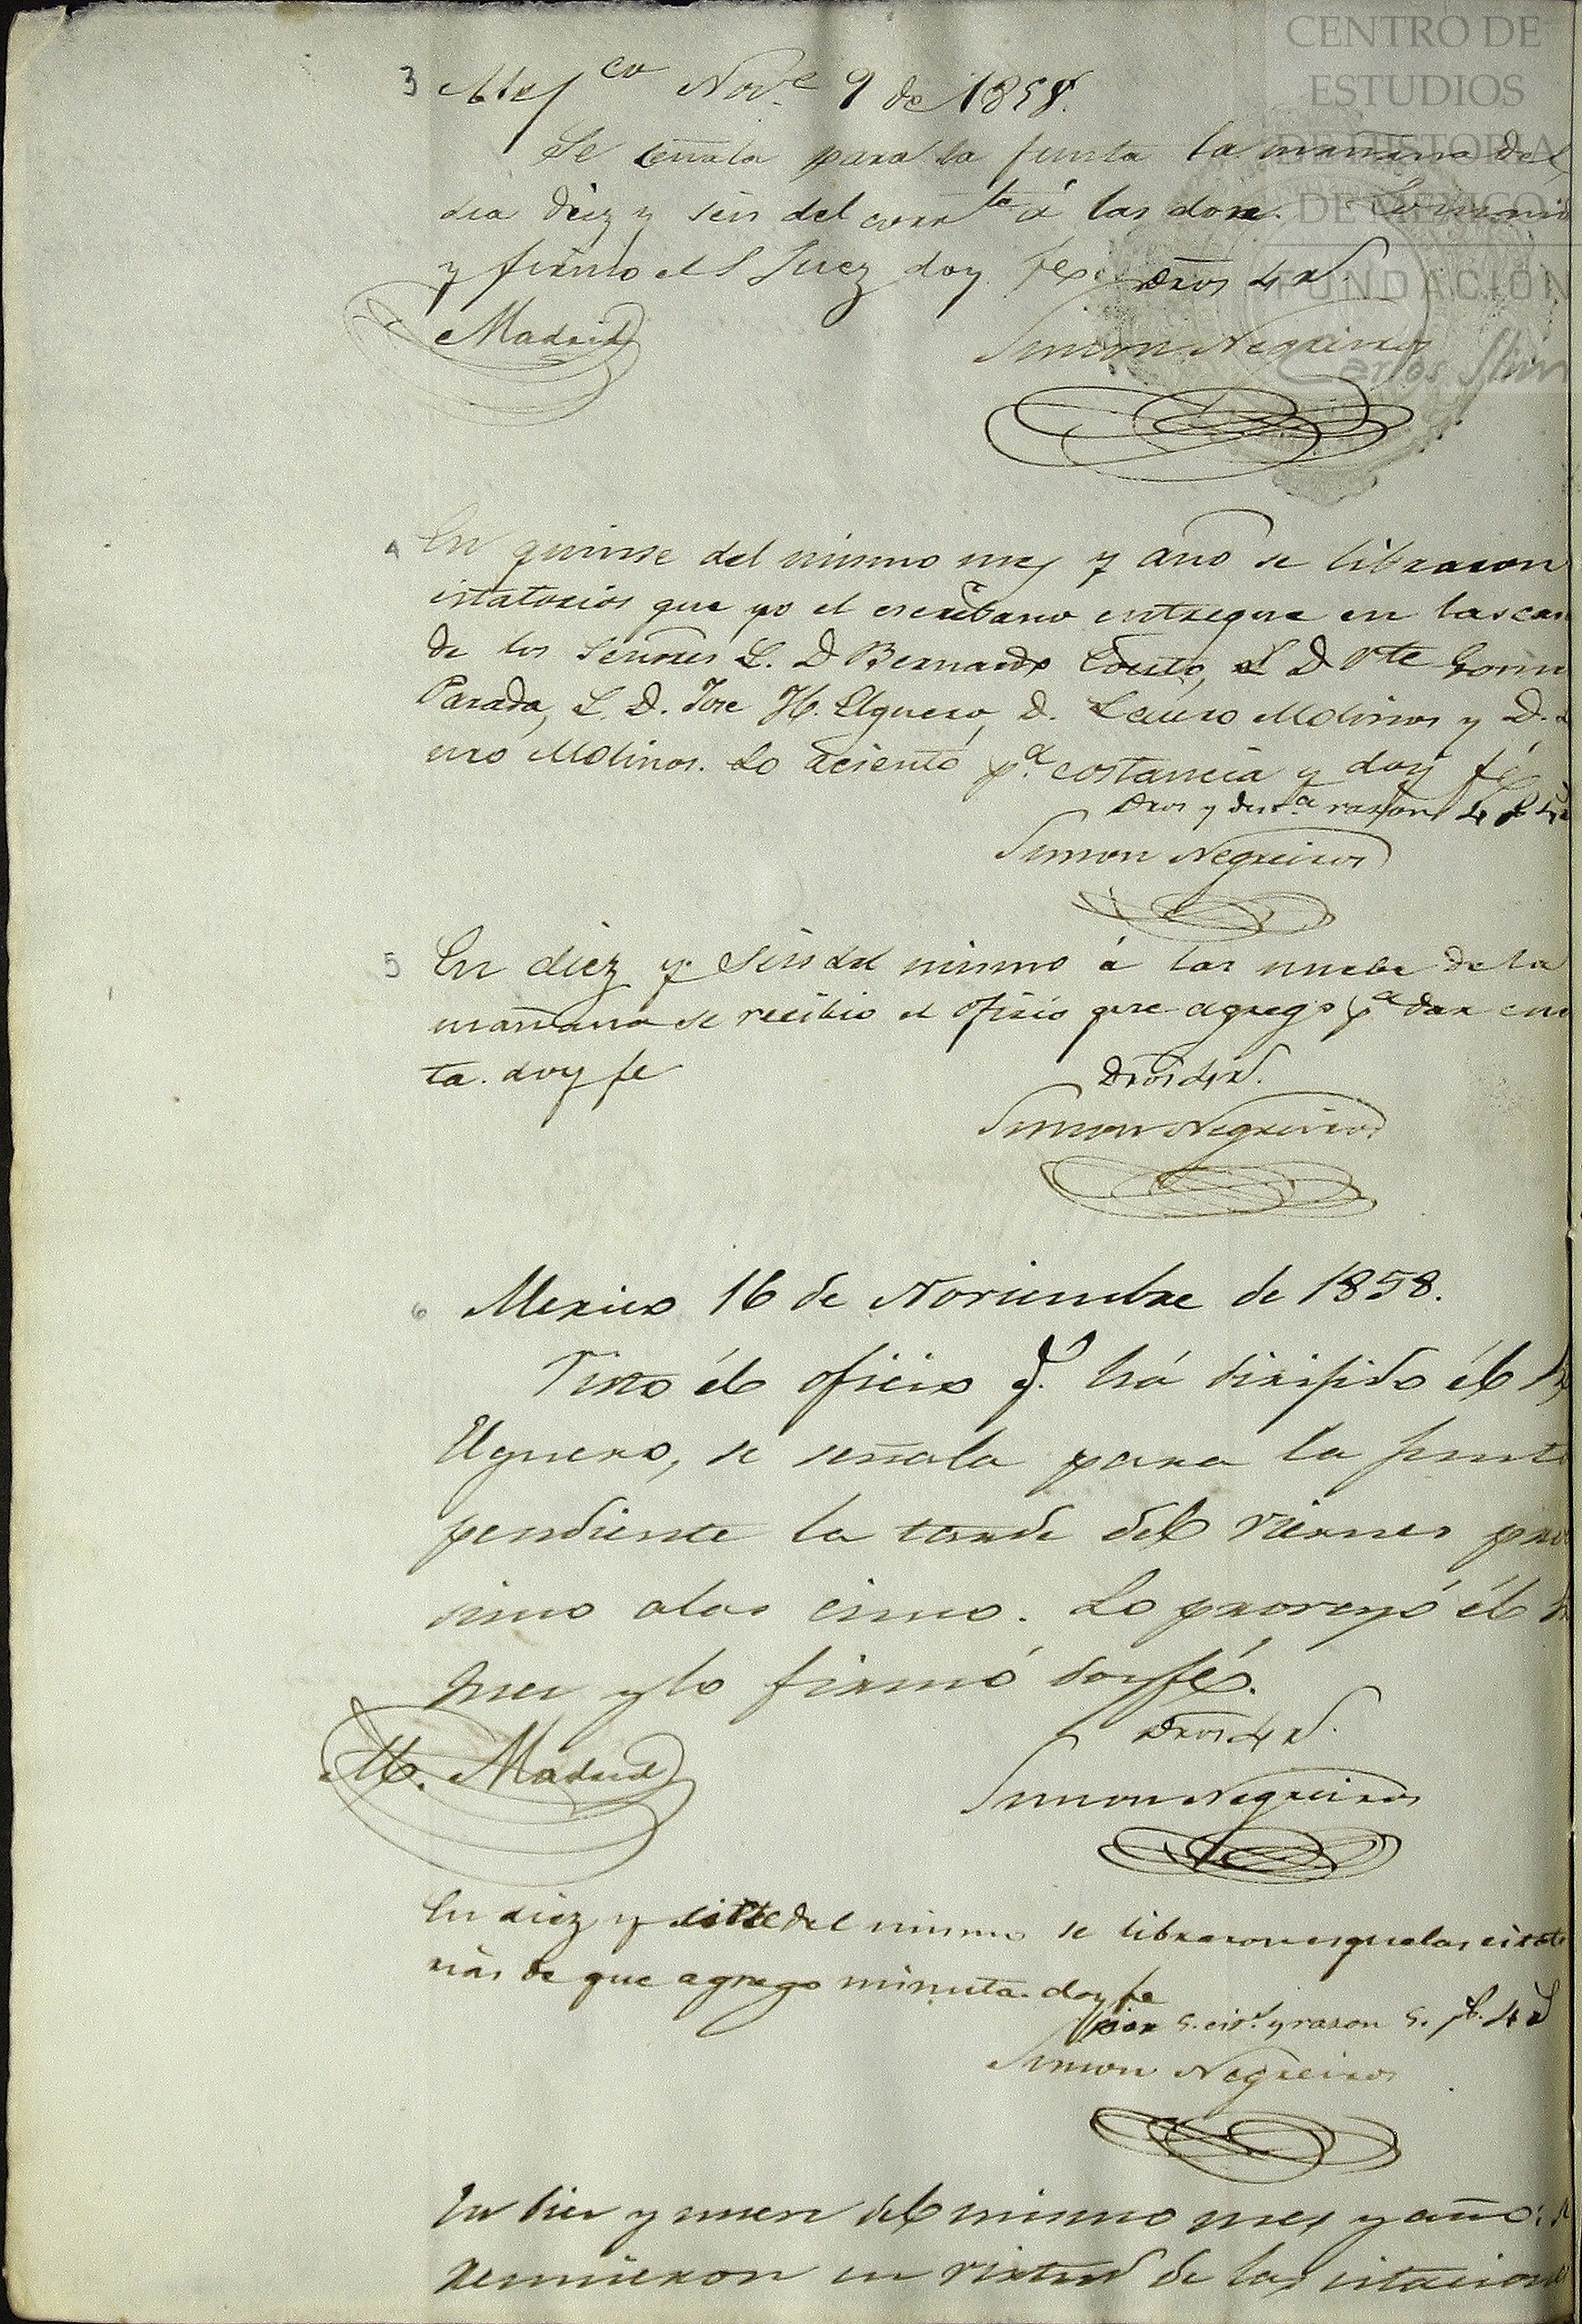 CENTRO DE
ESTUDIOS
DE HISTORIA
DE MEXICO
FUNDACION
Carlos Slim
3 Mexco Nove 9 de 1858.
Se señala para la junta la mañana del
dia diez y seis del corrte á las doze. Lo
y firmo el S Juez doy fe. Dros 4 r.
Madrid
Simon Negreiros
4 En quinse del mismo mes y año se libraron
sitatorios que yo el escribano entregue en las cas
de los Señores L. D Bernardo Couto, L D Vte Gom
Parada, L. D. Jose H. Elguero, D. Lauro Molinos y D.
uro Molinos. Lo aciento pa. costancia y doy fé
Dros y razon 4
Simon Negreiros
5 En diez y seis del mismo á las nuebe de la
mañana se recibio el ofisio que agrego pa dar cuen
ta. doy fe
Dros 4 r.
Simon Negreiros
6 Mexico 16 de Noviembre de 1858.
Visto él oficio q. há dirijido él
Elguero, se señala para la junta
pendiente la tarde del viernes pro
simo alas cinco. Lo proveyó él
Juez y lo firmó doy fé.
Dros 4 r.
M. Madrid
Simon Negreiros
En diez y siete del mismo se libraron esquelas citato
rias de que agrego minuta. doy fe
5. y razon 5. p. 4 r
Simon Negreiros
En diez y nueve del mismo mes y año: se
reunieron en virtud de las citaciones